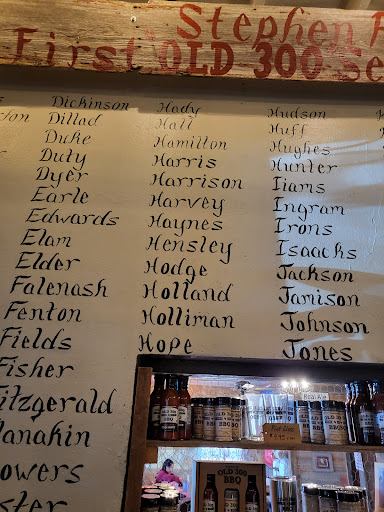 Stephen F
First OLD 300 Se
Dickinson
Dillad
Duke
Duty
Dyer
Earle
Edwards
Elam
Elder
Falenash
Fenton
Fields
Fisher
Fitzgerald
owers
Hady
Hall
Hamilton
Harris
Harrison
Harvey
Haynes
Hensley
Hodge
Holland
Holliman
Hope
Hudson
Huff
Hughes
Hunter
Iiams
Ingram
Irons
Isaacks
Jackson
Jamison
Johnson
Jones
Real Ale
OLD 300
BBQ